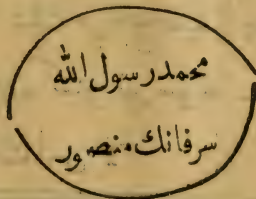 محمد رسول الله
سرفانك منصور